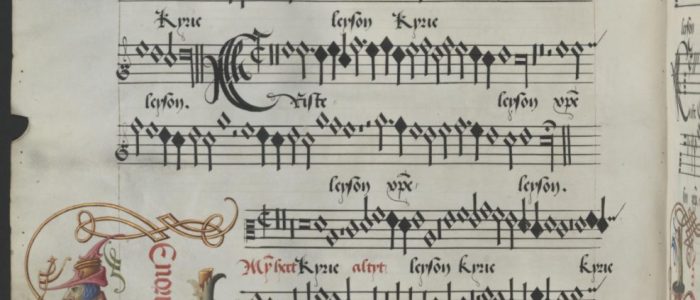 kyrie leyson kyrie
leyson. Criste leyson xpe
leyson xpe leyson.
Enor
Mÿ hert kyrie altyt: leyson kyrie kyrie